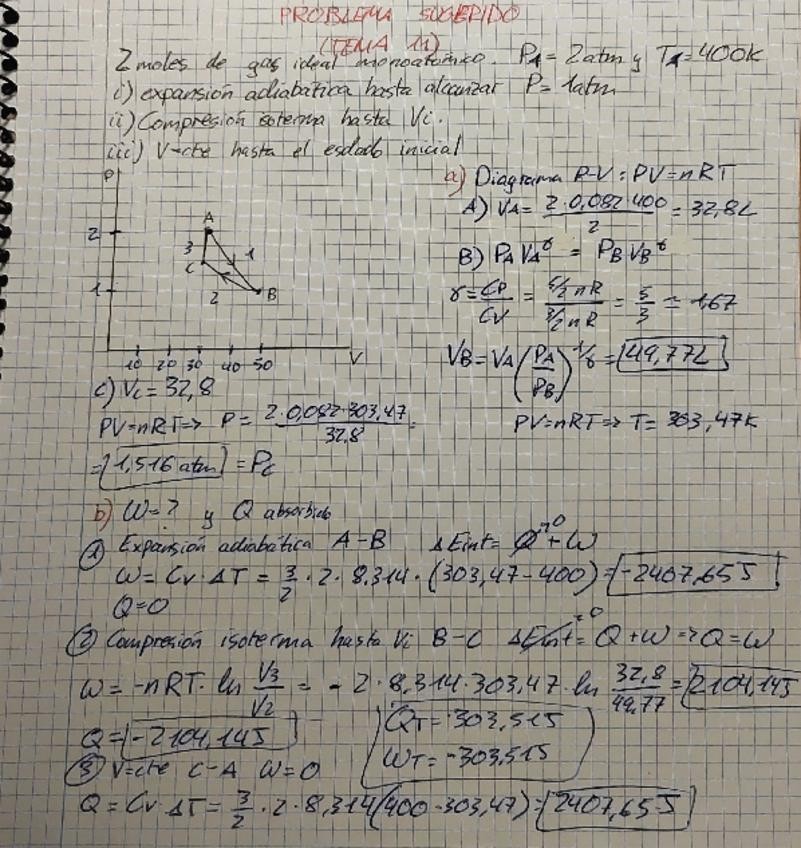 PROBLEMA SUGERIDO
(TEMA 11)
2 moles de gas ideal monoatómico. P1 = 2 atm y T1 = 400K
i) expansión adiabática hasta alcanzar P = 1 atm
ii) Compresión isoterma hasta Vi.
iii) V=cte hasta el estado inicial
a) Diagrama P-V : PV = nRT
A) VA = 2·0,082·400 / 2 = 32,8L
B) PA VA^γ = PB VB^γ
γ = CP/CV = 5/2 nR / 3/2 nR = 5/3 = 1,67
VB = VA (PA/PB)^1/γ = 49,77L
PV = nRT => T = 303,47K
P
2
1
A
3
1
C
2
B
10 20 30 40 50 V
C) Vc = 32,8
PV = nRT => P = 2·0,082·303,47 / 32,8 =
= 1,516 atm = Pc
b) W = ? y Q absorbido
① Expansión adiabática A-B ΔEint = Q→0 + W
W = Cv·ΔT = 3/2 · 2 · 8,314 · (303,47 - 400) = -2407,65J
Q = 0
② Compresión isoterma hasta Vi B-C ΔEint = 0 = Q + W => Q = W
W = -nRT · ln V3/V2 = - 2 · 8,314 · 303,47 · ln 32,8/49,77 = 2104,14J
Q = -2104,14J
QT = 303,51J
WT = -303,51J
③ V=cte C-A W = 0
Q = Cv ΔT = 3/2 · 2 · 8,314 (400 - 303,47) = 2407,65J